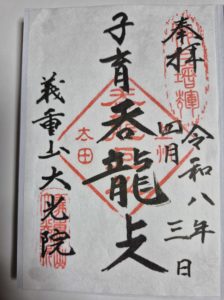 奉拝
令和八年
四月三日
子育呑龍上人
太田
義重山大光院